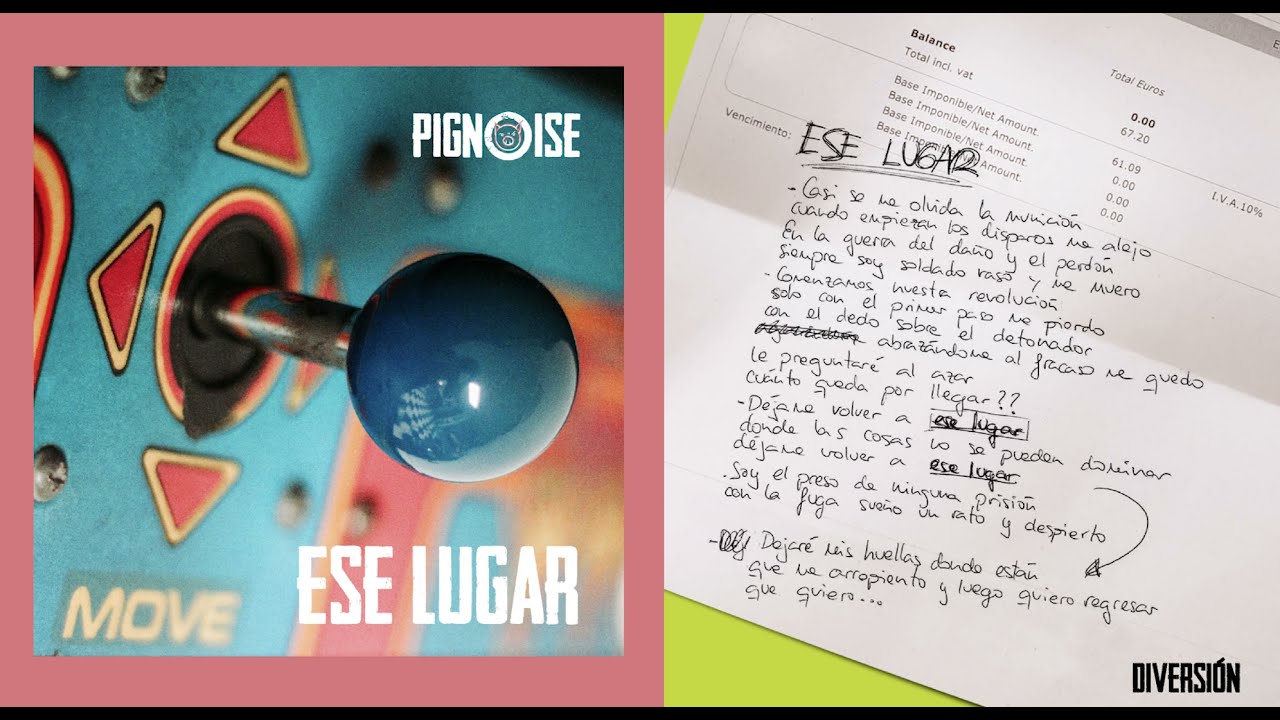 PIGNOISE
ESE LUGAR
MOVE
Balance
Total Euros
Total incl. vat
0.00
Base Imponible/Net Amount.
67.20
Base Imponible/Net Amount.
Base Imponible/Net Amount.
61.09
Base Imponible/Net Amount.
0.00
0.00
0.00
I.V.A.10%
Vencimiento:
E
ESE LUGAR
- Casi se me olvida la munición
cuando empiezan los disparos me alejo
En la guerra del daño y el perdón
siempre soy soldado raso y me muero
- Comenzamos nuestra revolución
solo con el primer paso me pierdo
con el dedo sobre el detonador
abrazándome al fracaso me quedo
le preguntaré al azar
cuánto queda por llegar??
- Déjame volver a ese lugar
donde las cosas no se pueden dominar
déjame volver a ese lugar
. Soy el preso de ninguna prisión
con la fuga sueño un rato y despierto
- Dejaré mis huellas donde están
que me arrepiento y luego quiero regresar
que quiero...
DIVERSIÓN